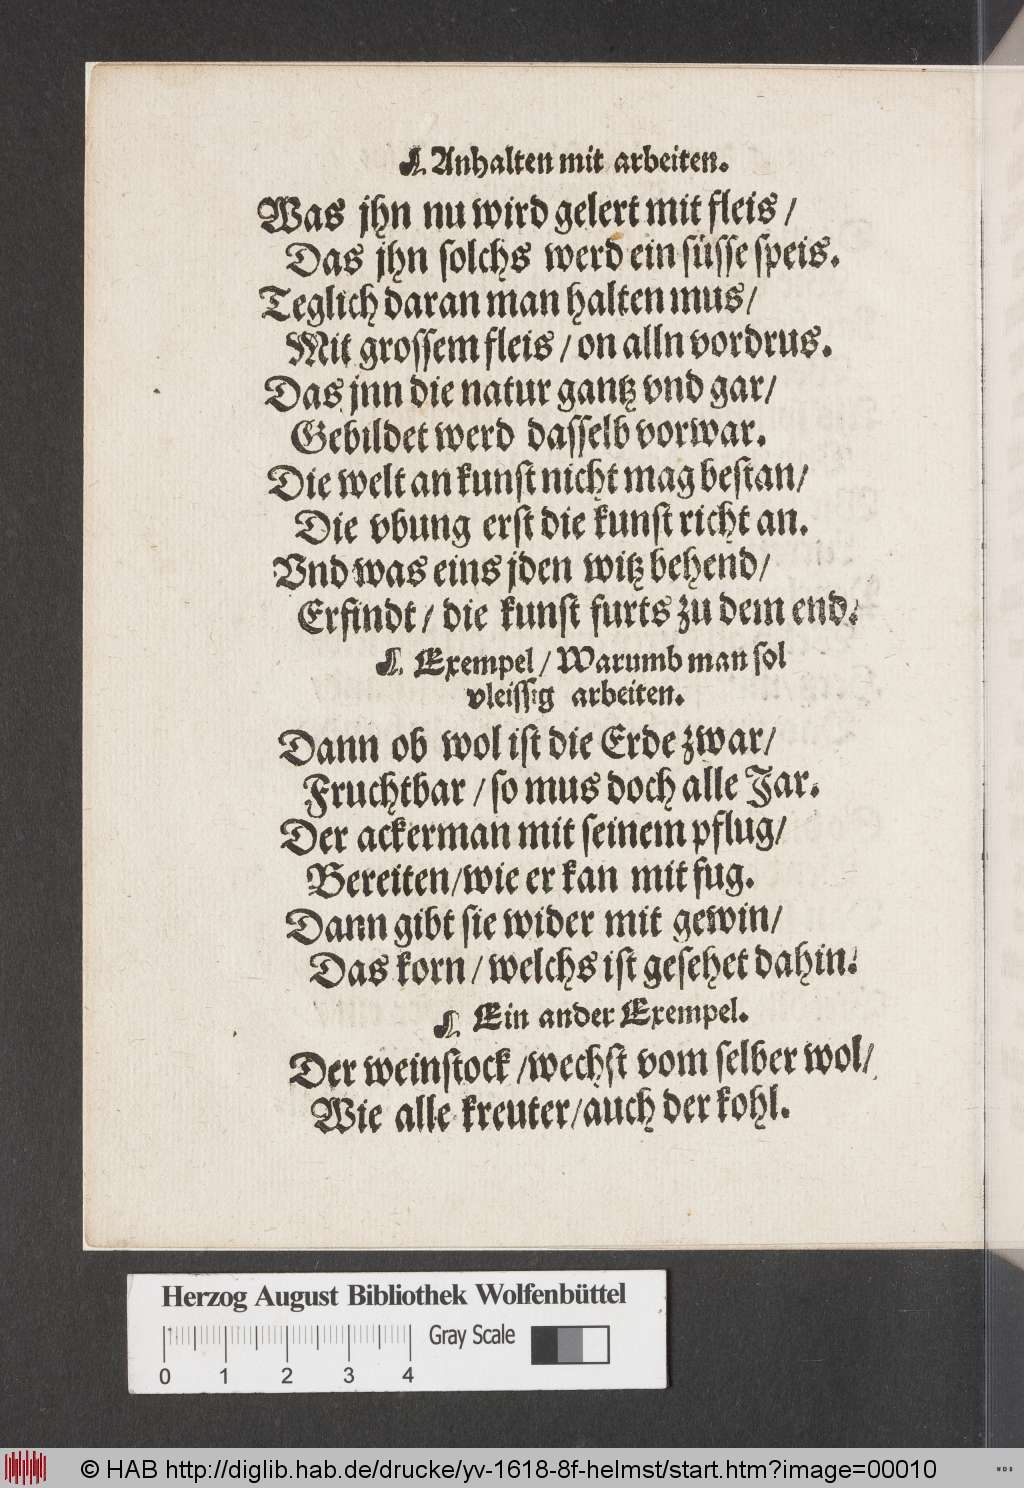 Anhalten mit arbeiten.
Was jhn nu wird gelert mit fleis /
Das jhn solchs werd ein süsse speis.
Teglich daran man halten mus /
Mit grossem fleis / on alln vordrus.
Das jnn die natur gantz vnd gar /
Gebildet werd dasselb vorwar.
Die welt an kunst nicht mag bestan /
Die vbung erst die kunst richt an.
Vnd was eins jden witz behend /
Erfindt / die kunst furts zu dem end.
Exempel / Warumb man sol
vleissig arbeiten.
Dann ob wol ist die Erde zwar /
Fruchtbar / so mus doch alle Jar.
Der ackerman mit seinem pflug /
Bereiten / wie er kan mit fug.
Dann gibt sie wider mit gewin /
Das korn / welchs ist gesehet dahin.
Ein ander Exempel.
Der weinstock / wechst vom selber wol /
Wie alle kreuter / auch der kohl.
Herzog August Bibliothek Wolfenbüttel
Gray Scale
0 1 2 3 4
© HAB http://diglib.hab.de/drucke/yv-1618-8f-helmst/start.htm?image=00010